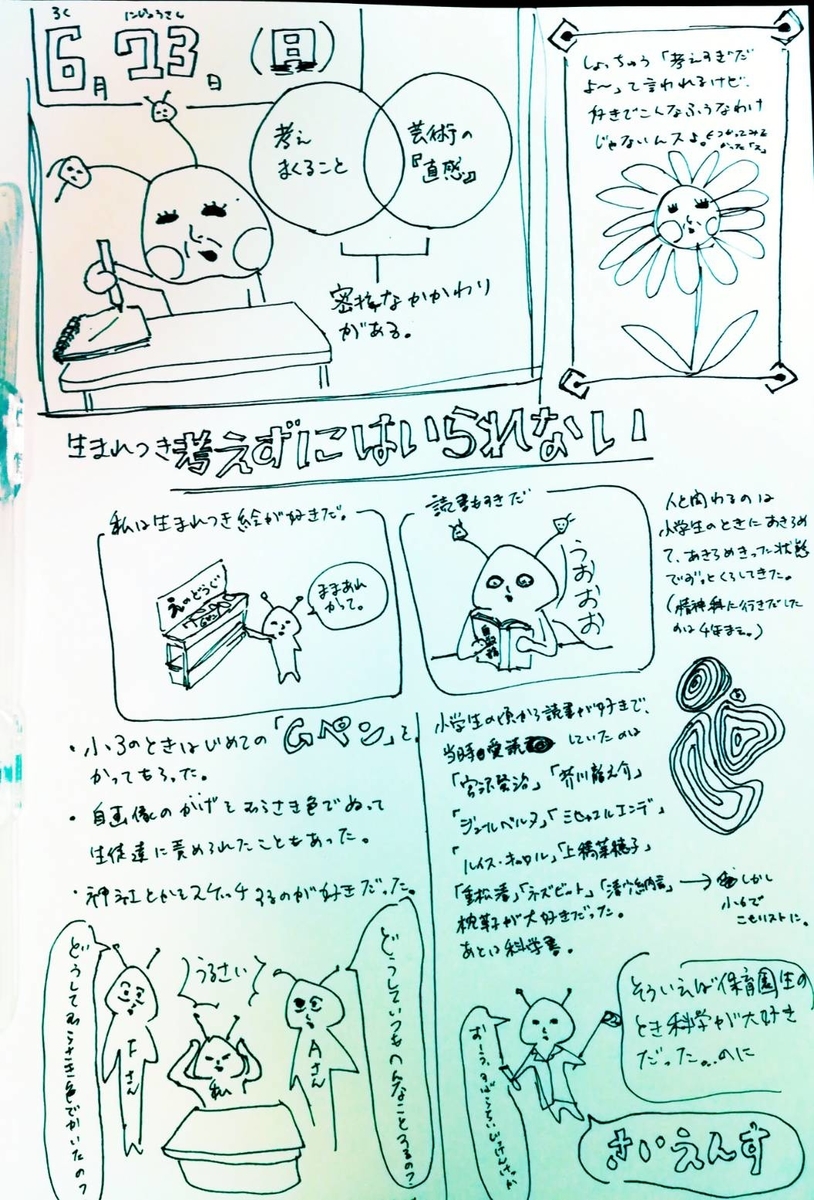 ろく にじゅうさん
6月23日(日)
考え
まくること
芸術の
『直感』
密接なかかわり
がある。
しょっちゅう「考えすぎだ
よ〜」って言われるけど、
好きでこんなふうなわけ
じゃないんスよ。
生まれつき考えずにはいられない
私は生まれつき絵が好きだ。
えのどうぐ
ままあれ
かって。
読書も好きだ
うおおお
人と関わるのは
小学生のときにあきらめ
て、あきらめきった状態
でずっとくらしてきた。
(精神科に行きだした
のは4年まえ。)
・小3のときはじめての「Gペン」を
かってもらった。
・自画像のかげをむらさき色でぬって
生徒達に責められたこともあった。
・神社とかをスケッチするのが好きだった。
小学生の頃から読書が好きで、
当時愛読していたのは
「宮沢賢治」「芥川龍之介」
「ジュールベルヌ」「ミヒャエルエンデ」
「ルイス・キャロル」「上橋菜穂子」
「重松清」「ネズビット」「清少納言」→しかし
小6で
こもリストに。
枕草子が大好きだった。
あとは科学書。
どうしてむらさき色でかいたの?
Fさん
うるさい
私
Aさん
どうしていつもへんなことするの?
そういえば保育園生の
とき科学が大好き
だった。のに
さいえんす